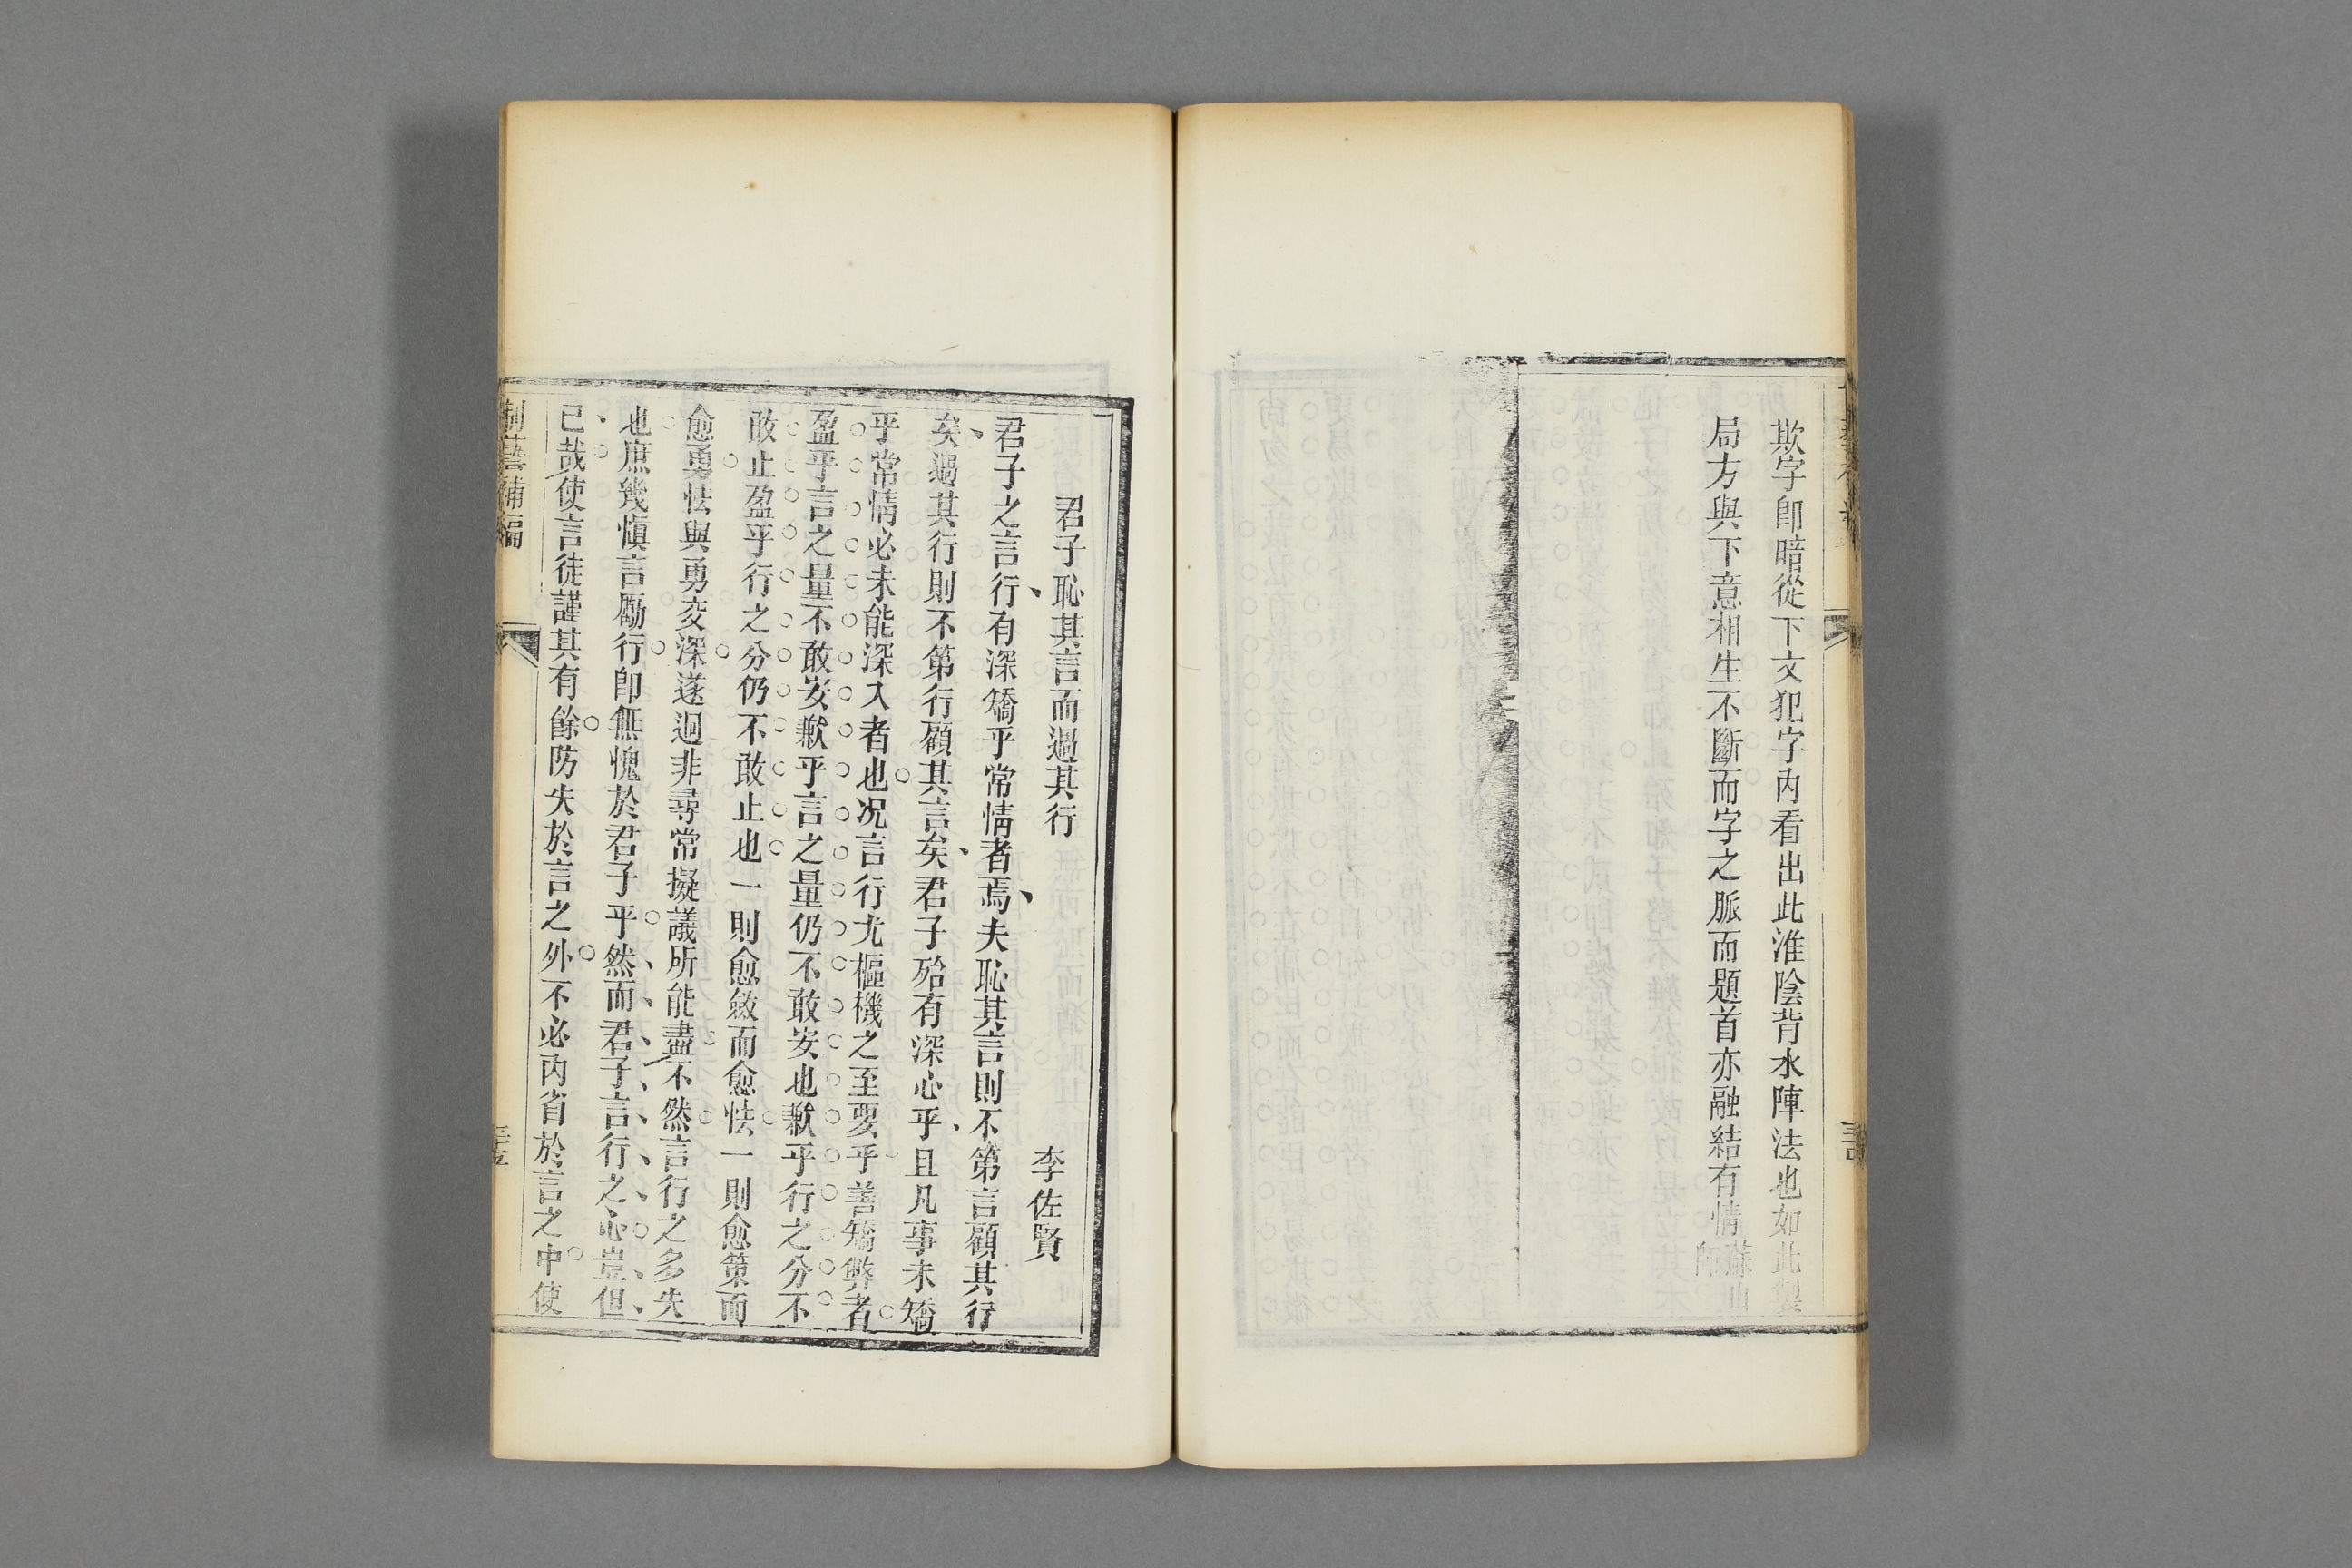 欺字卽暗從下文犯字內看出此淮陰背水陣法也如此製
局方與下意相生不斷而字之脈而題首亦融結有情
君子恥其言而過其行
李佐賢
君子之言行有深矯乎常情者焉夫恥其言則不第言顧其行
矣過其行則不第行顧其言矣君子殆有深心乎且凡事未矯
乎常情必未能深入者也况言行尤樞機之至要乎善矯弊者
盈乎言之量不敢安歉乎言之量仍不敢安也歉乎行之分不
敢止盈乎行之分仍不敢止也一則愈斂而愈怯一則愈策而
愈勇怯與勇交深遂迥非尋常擬議所能盡不然言行之多失
也庶幾愼言勵行卽無愧於君子乎然而君子言行之心豈但
已哉使言徒謹其有餘防失於言之外不必內省於言之中使
制藝補編
三十五